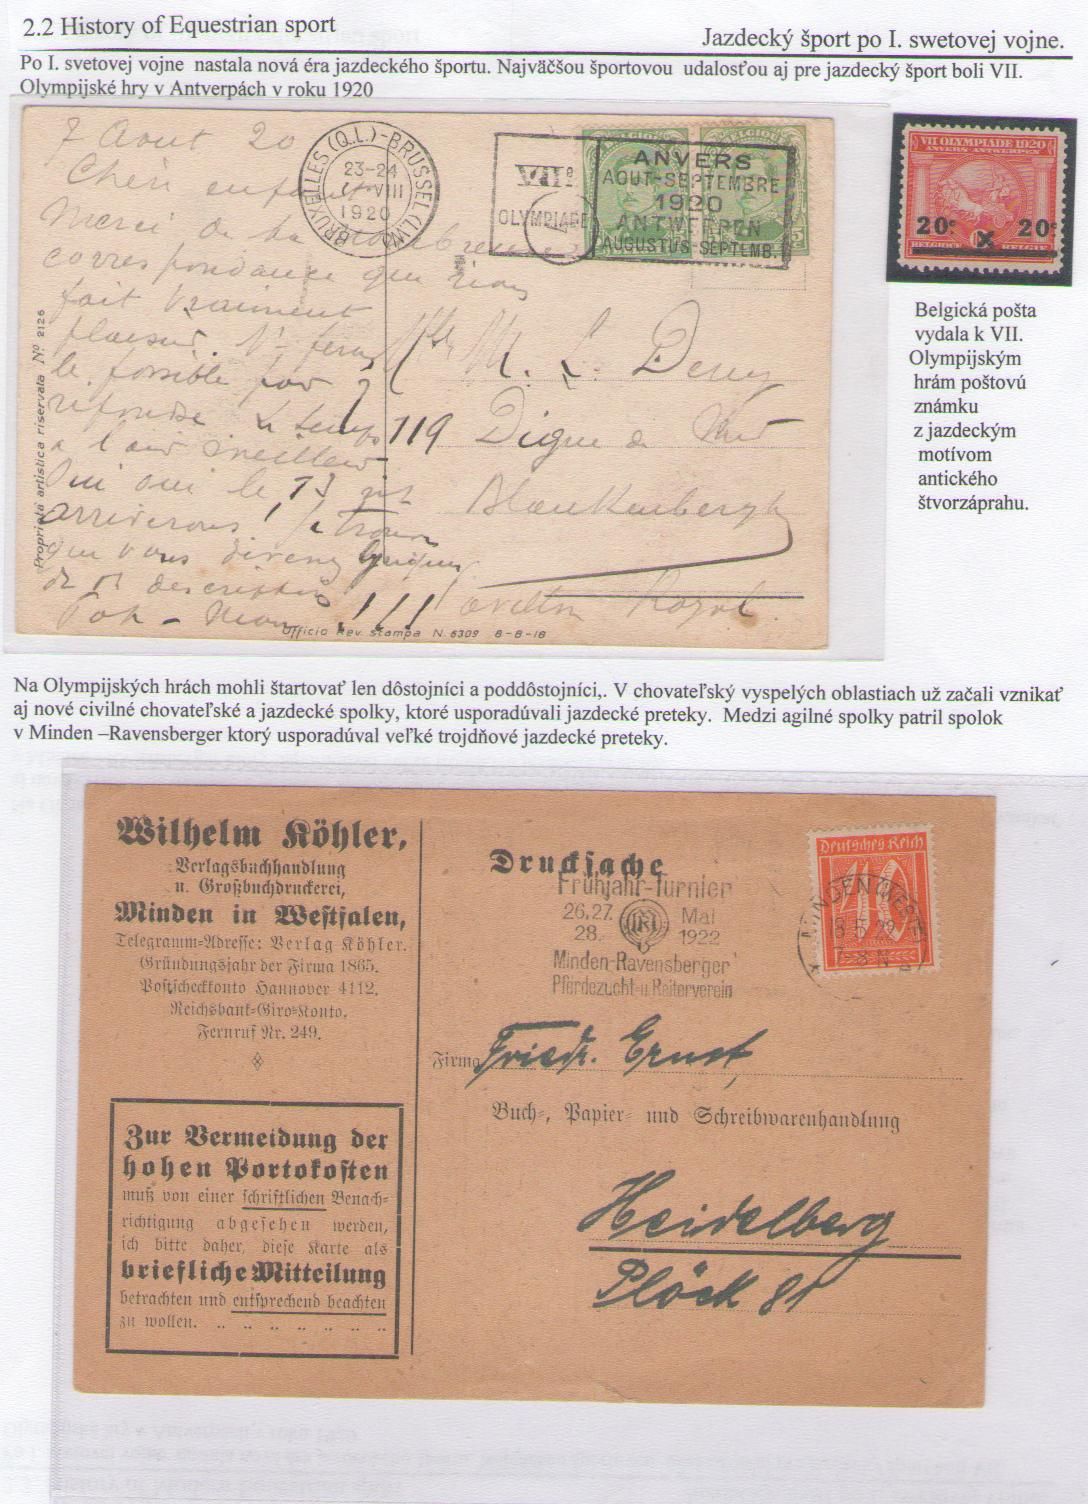 2.2 History of Equestrian sport
Jazdecký šport po I. swetovej vojne.
Po I. svetovej vojne nastala nová éra jazdeckého športu. Najväčšou športovou udalosťou aj pre jazdecký šport boli VII.
Olympijské hry v Antverpách v roku 1920
7 Aout 20
Chers enfants
Merci de ta nombreuse
correspondance qui nous
fait vraiment
plaisir.
le possible pour
réponse
a l'air meilleur
Oui oui le 17
arriverons
que vous
de
Proprietà artistica riservata Nº 2126
Ufficio Rev. Stampa N. 5309 8-8-18
BRUXELLES (Q.L.)-BRUSSEL (L.W.)
23-24
VIII
1920
VIIe
OLYMPIADE
ANVERS
AOUT-SEPTEMBRE
1920
ANTWERPEN
AUGUSTUS-SEPTEMB.
BELGIQUE
BELGIQUE
5
M. L.
119 Digue de Mer
Blankenberghe
VII OLYMPIADE 1920
ANVERS ANTWERPEN
20c x 20c
BELGIQUE BELGIË
Belgická pošta
vydala k VII.
Olympijským
hrám poštovú
známku
z jazdeckým
motívom
antického
štvorzáprahu.
Na Olympijských hrách mohli štartovať len dôstojníci a poddôstojníci,. V chovateľský vyspelých oblastiach už začali vznikať
aj nové civilné chovateľské a jazdecké spolky, ktoré usporadúvali jazdecké preteky. Medzi agilné spolky patril spolok
v Minden –Ravensberger ktorý usporadúval veľké trojdňové jazdecké preteky.
Wilhelm Köhler,
Verlagsbuchhandlung
u. Großbuchdruckerei,
Minden in Westfalen,
Telegramm-Adresse: Verlag Köhler.
Gründungsjahr der Firma 1865.
Postscheckkonto Hannover 4112.
Reichsbank-Giro-Konto.
Fernruf Nr. 249.
Zur Vermeidung der
hohen Portokosten
muß von einer schriftlichen Benach-
richtigung abgesehen werden,
ich bitte daher, diese Karte als
briefliche Mitteilung
betrachten und entsprechend beachten
zu wollen. .. .. .. .. .. .. ..
Drucksache
Frühjahr-Turnier
26.27. Mai
28. 1922
Minden-Ravensberger
Pferdezucht-u. Reiterverein
Deutsches Reich
40
MINDEN (WESTF)
18.5.22
7-8 N
Firma Friedr. Ernst,
Buch-, Papier- und Schreibwarenhandlung
Heidelberg
Plöck 81